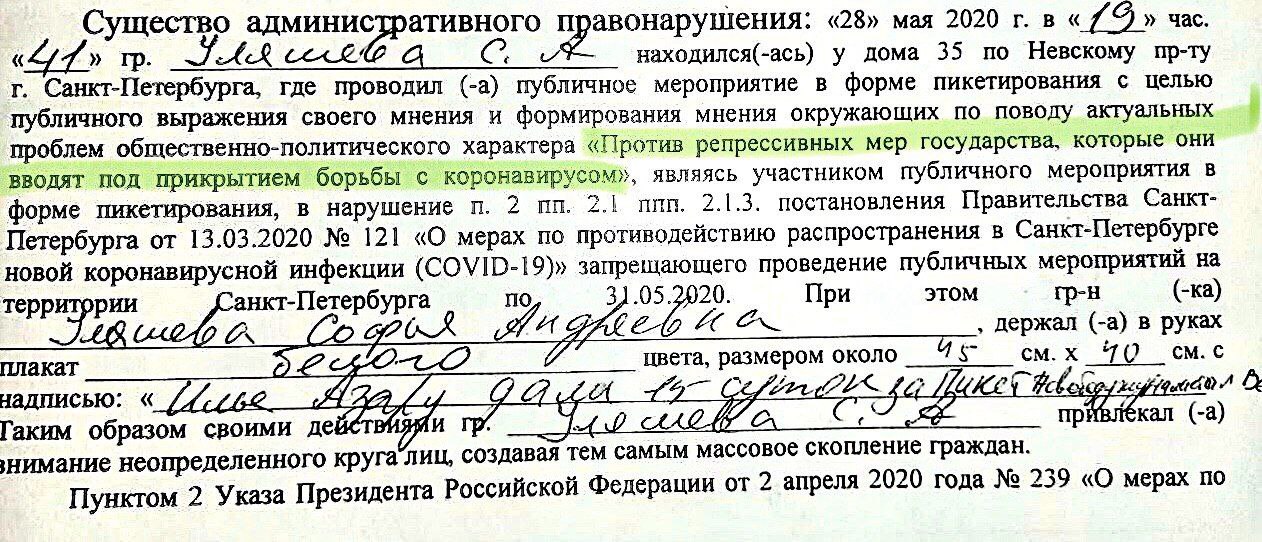 Существо административного правонарушения: «28» мая 2020 г. в «19» час.
«41» гр. Уляшева С. А находился(-ась) у дома 35 по Невскому пр-ту
г. Санкт-Петербурга, где проводил (-а) публичное мероприятие в форме пикетирования с целью
публичного выражения своего мнения и формирования мнения окружающих по поводу актуальных
проблем общественно-политического характера «Против репрессивных мер государства, которые они
вводят под прикрытием борьбы с коронавирусом», являясь участником публичного мероприятия в
форме пикетирования, в нарушение п. 2 пп. 2.1 ппп. 2.1.3. постановления Правительства Санкт-
Петербурга от 13.03.2020 № 121 «О мерах по противодействию распространения в Санкт-Петербурге
новой коронавирусной инфекции (COVID-19)» запрещающего проведение публичных мероприятий на
территории Санкт-Петербурга по 31.05.2020. При этом гр-н (-ка)
Уляшева Софья Андреевна, держал (-а) в руках
плакат белого цвета, размером около 45 см. х 40 см. с
надписью: « Илье Азару дали 15 суток за Пикет
Таким образом своими действиями гр. Уляшева С. А привлекал (-а)
внимание неопределенного круга лиц, создавая тем самым массовое скопление граждан.
Пунктом 2 Указа Президента Российской Федерации от 2 апреля 2020 года № 239 «О мерах по